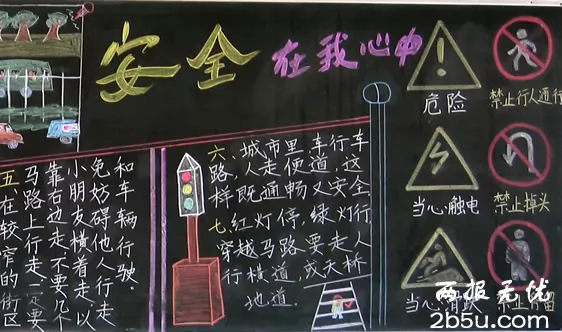 安全
在我心中
五、在较窄的街区
马路上行走一定要
靠右边走不要几个
小朋友横着走以
免妨碍他人行走
和车辆行驶.
六、城市里,车行车
路,人走便道,这
样既通畅又安全
七、红灯停,绿灯行
穿越马路要走人
行横道,或天桥
地道.
危险
禁止行人通行
当心触电
禁止掉头
当心滑
禁止 留
两报无忧
2b5u.com